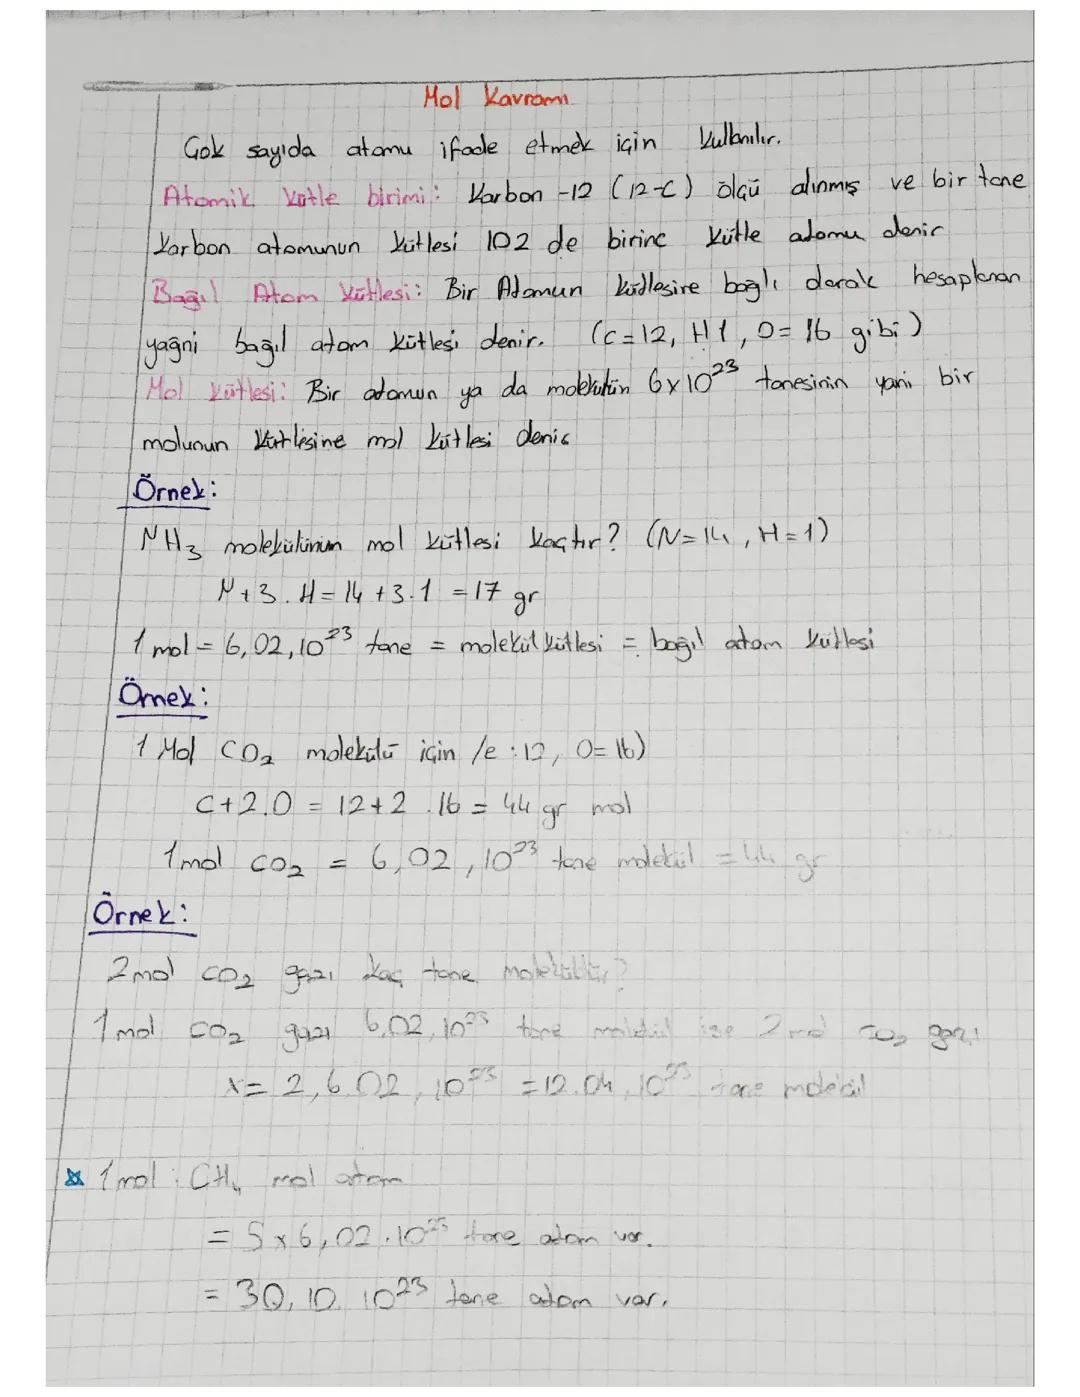 Mol Kavramı
Çok sayıda atomu ifade etmek için kullanılır.
Atomik kütle birimi: Karbon -12 (12-C) ölçü alınmış ve bir tane
karbon atomunun kütlesi 102 de birinc kütle atomu denir
Bağıl Atom Kütlesi: Bir Atomun kütlesine bağlı olarak hesaplanan
yağni bağıl atom kütlesi denir. (C=12, H1, O=16 gibi)
Mol kütlesi: Bir atomun ya da molekülün 6x10²³ tanesinin yani bir
molunun kütlesine mol kütlesi denir
Örnek:
NH₃ molekülünün mol kütlesi kaçtır? (N=14, H=1)
N+3.H=14+3.1=17 gr
1 mol = 6,02,10²³ tane = molekül kütlesi = bağıl atom kütlesi
Örnek:
1 Mol CO₂ molekülü için /e:12, O=16)
C+2.O = 12+2.16=44 gr mol
1mol CO₂ = 6,02,10²³ tane molekül =44 gr
Örnek:
2mol CO₂ gazı kaç tane moleküldür?
1mol CO₂ gazı 6.02.10²³ tane molekül ise 2mol CO₂ gazı
x= 2,6.02,10²³ =12.04,10²³ tane molekül
1mol: CH₄ mol atom
= 5x6,02.10²³ tane atom var.
= 30,10 10²³ tane atom var.